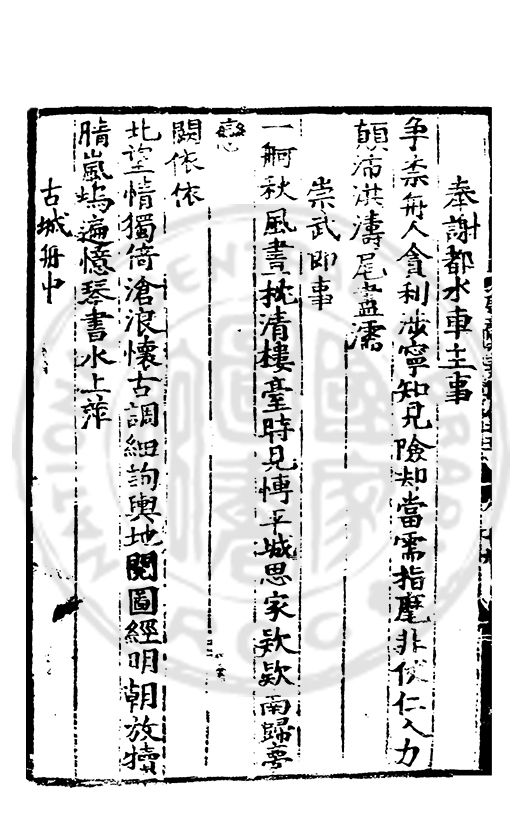 奉謝都水車主事
爭柰舟人貪利涉寧知見險却當需指麾非仗仁人力
顛沛洪濤尾盡濡
崇武即事
一舸秋風書枕清樓臺時見愽平城思家欵欵南歸夢
戀
闕依依
北望情獨倚滄浪懷古調細詢輿地閱圖經明朝放犢
腈嵐塢遍憶琴書水上萍
古城舟中